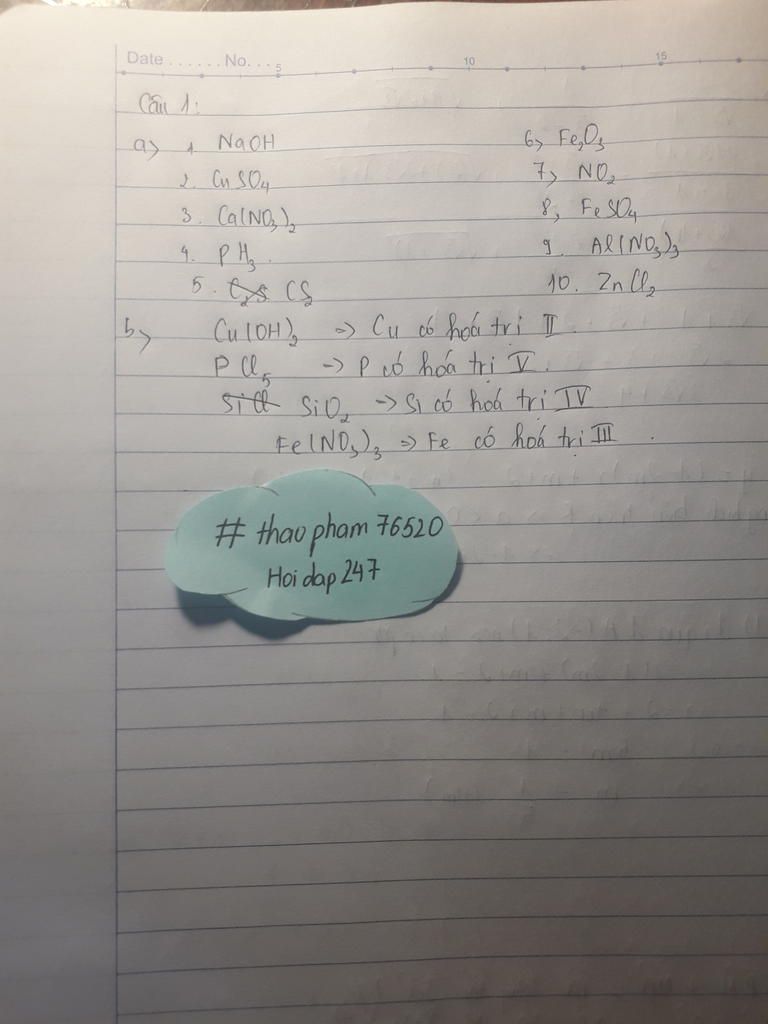 Date ...... No. ... 5 10 15
Câu 1:
a> 1 NaOH
2. CuSO4
3. Ca(NO3)2
4. PH3.
5. C2S CS2
6> Fe2O3
7, NO2
8, FeSO4
9. Al(NO3)3
10. ZnCl2
b> Cu(OH)2 => Cu có hoá trị II.
PCl5 -> P có hoá trị V.
SiCl SiO2 -> Si có hoá trị IV
Fe(NO3)3 => Fe có hoá trị III.
# thaopham76520
Hoidap247